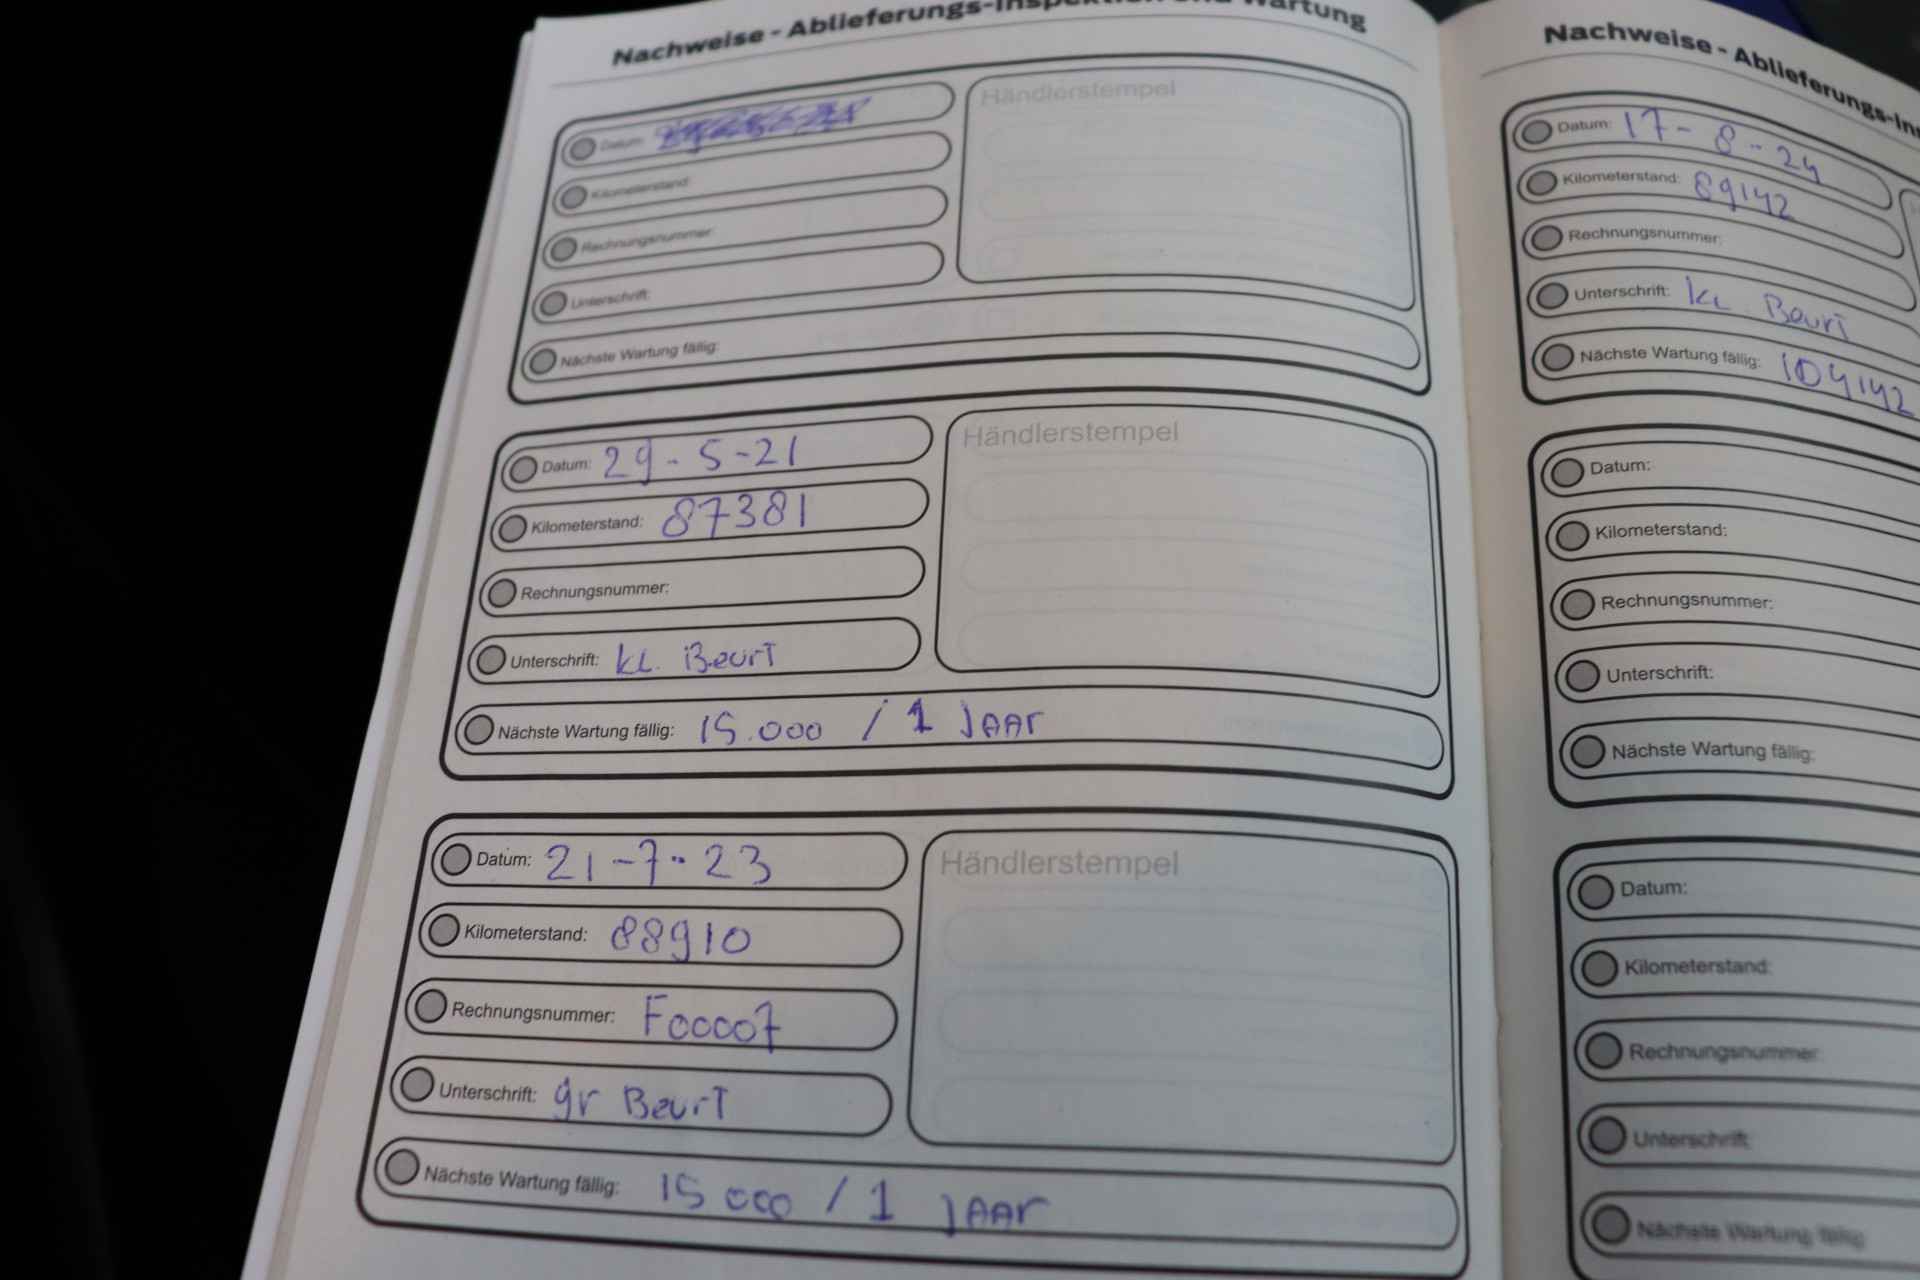 Nachweise - Ablieferungs-Inspektion und Wartung
Datum:
Kilometerstand:
Rechnungsnummer:
Unterschrift:
Nächste Wartung fällig:
Händlerstempel
Datum: 29-5-21
Kilometerstand: 87381
Rechnungsnummer:
Unterschrift: kl. Beurt
Nächste Wartung fällig: 15.000 / 1 Jaar
Händlerstempel
Datum: 21-7-23
Kilometerstand: 88910
Rechnungsnummer: F00007
Unterschrift: gr Beurt
Nächste Wartung fällig: 15 000 / 1 jaar
Händlerstempel
Nachweise - Ablieferungs-Ins
Datum: 17-8-24
Kilometerstand: 89142
Rechnungsnummer:
Unterschrift: kl. Beurt
Nächste Wartung fällig: 104142
Datum:
Kilometerstand:
Rechnungsnummer:
Unterschrift:
Nächste Wartung fällig:
Datum:
Kilometerstand:
Rechnungsnummer:
Unterschrift:
Nächste Wartung fällig: